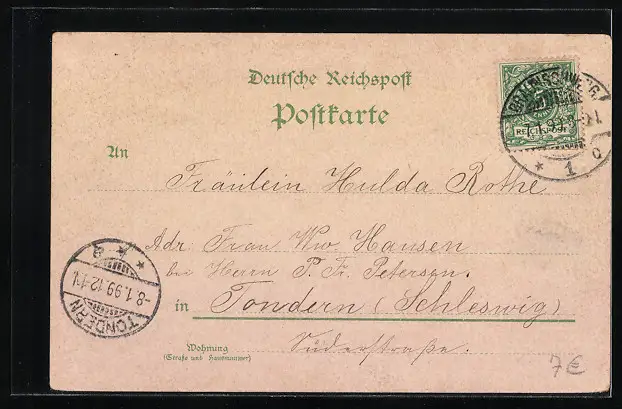 Deutsche Reichspost
Postkarte
An
Fräulein Hulda Rothe
Adr. Frau Ww Hansen
bei Herrn P. Fr. Petersen.
in Tondern (Schleswig)
Wohnung
(Straße und Hausnummer)
Süderstraße.
TONDERN
-8.1.99.12-1N.
* 1 c
7€